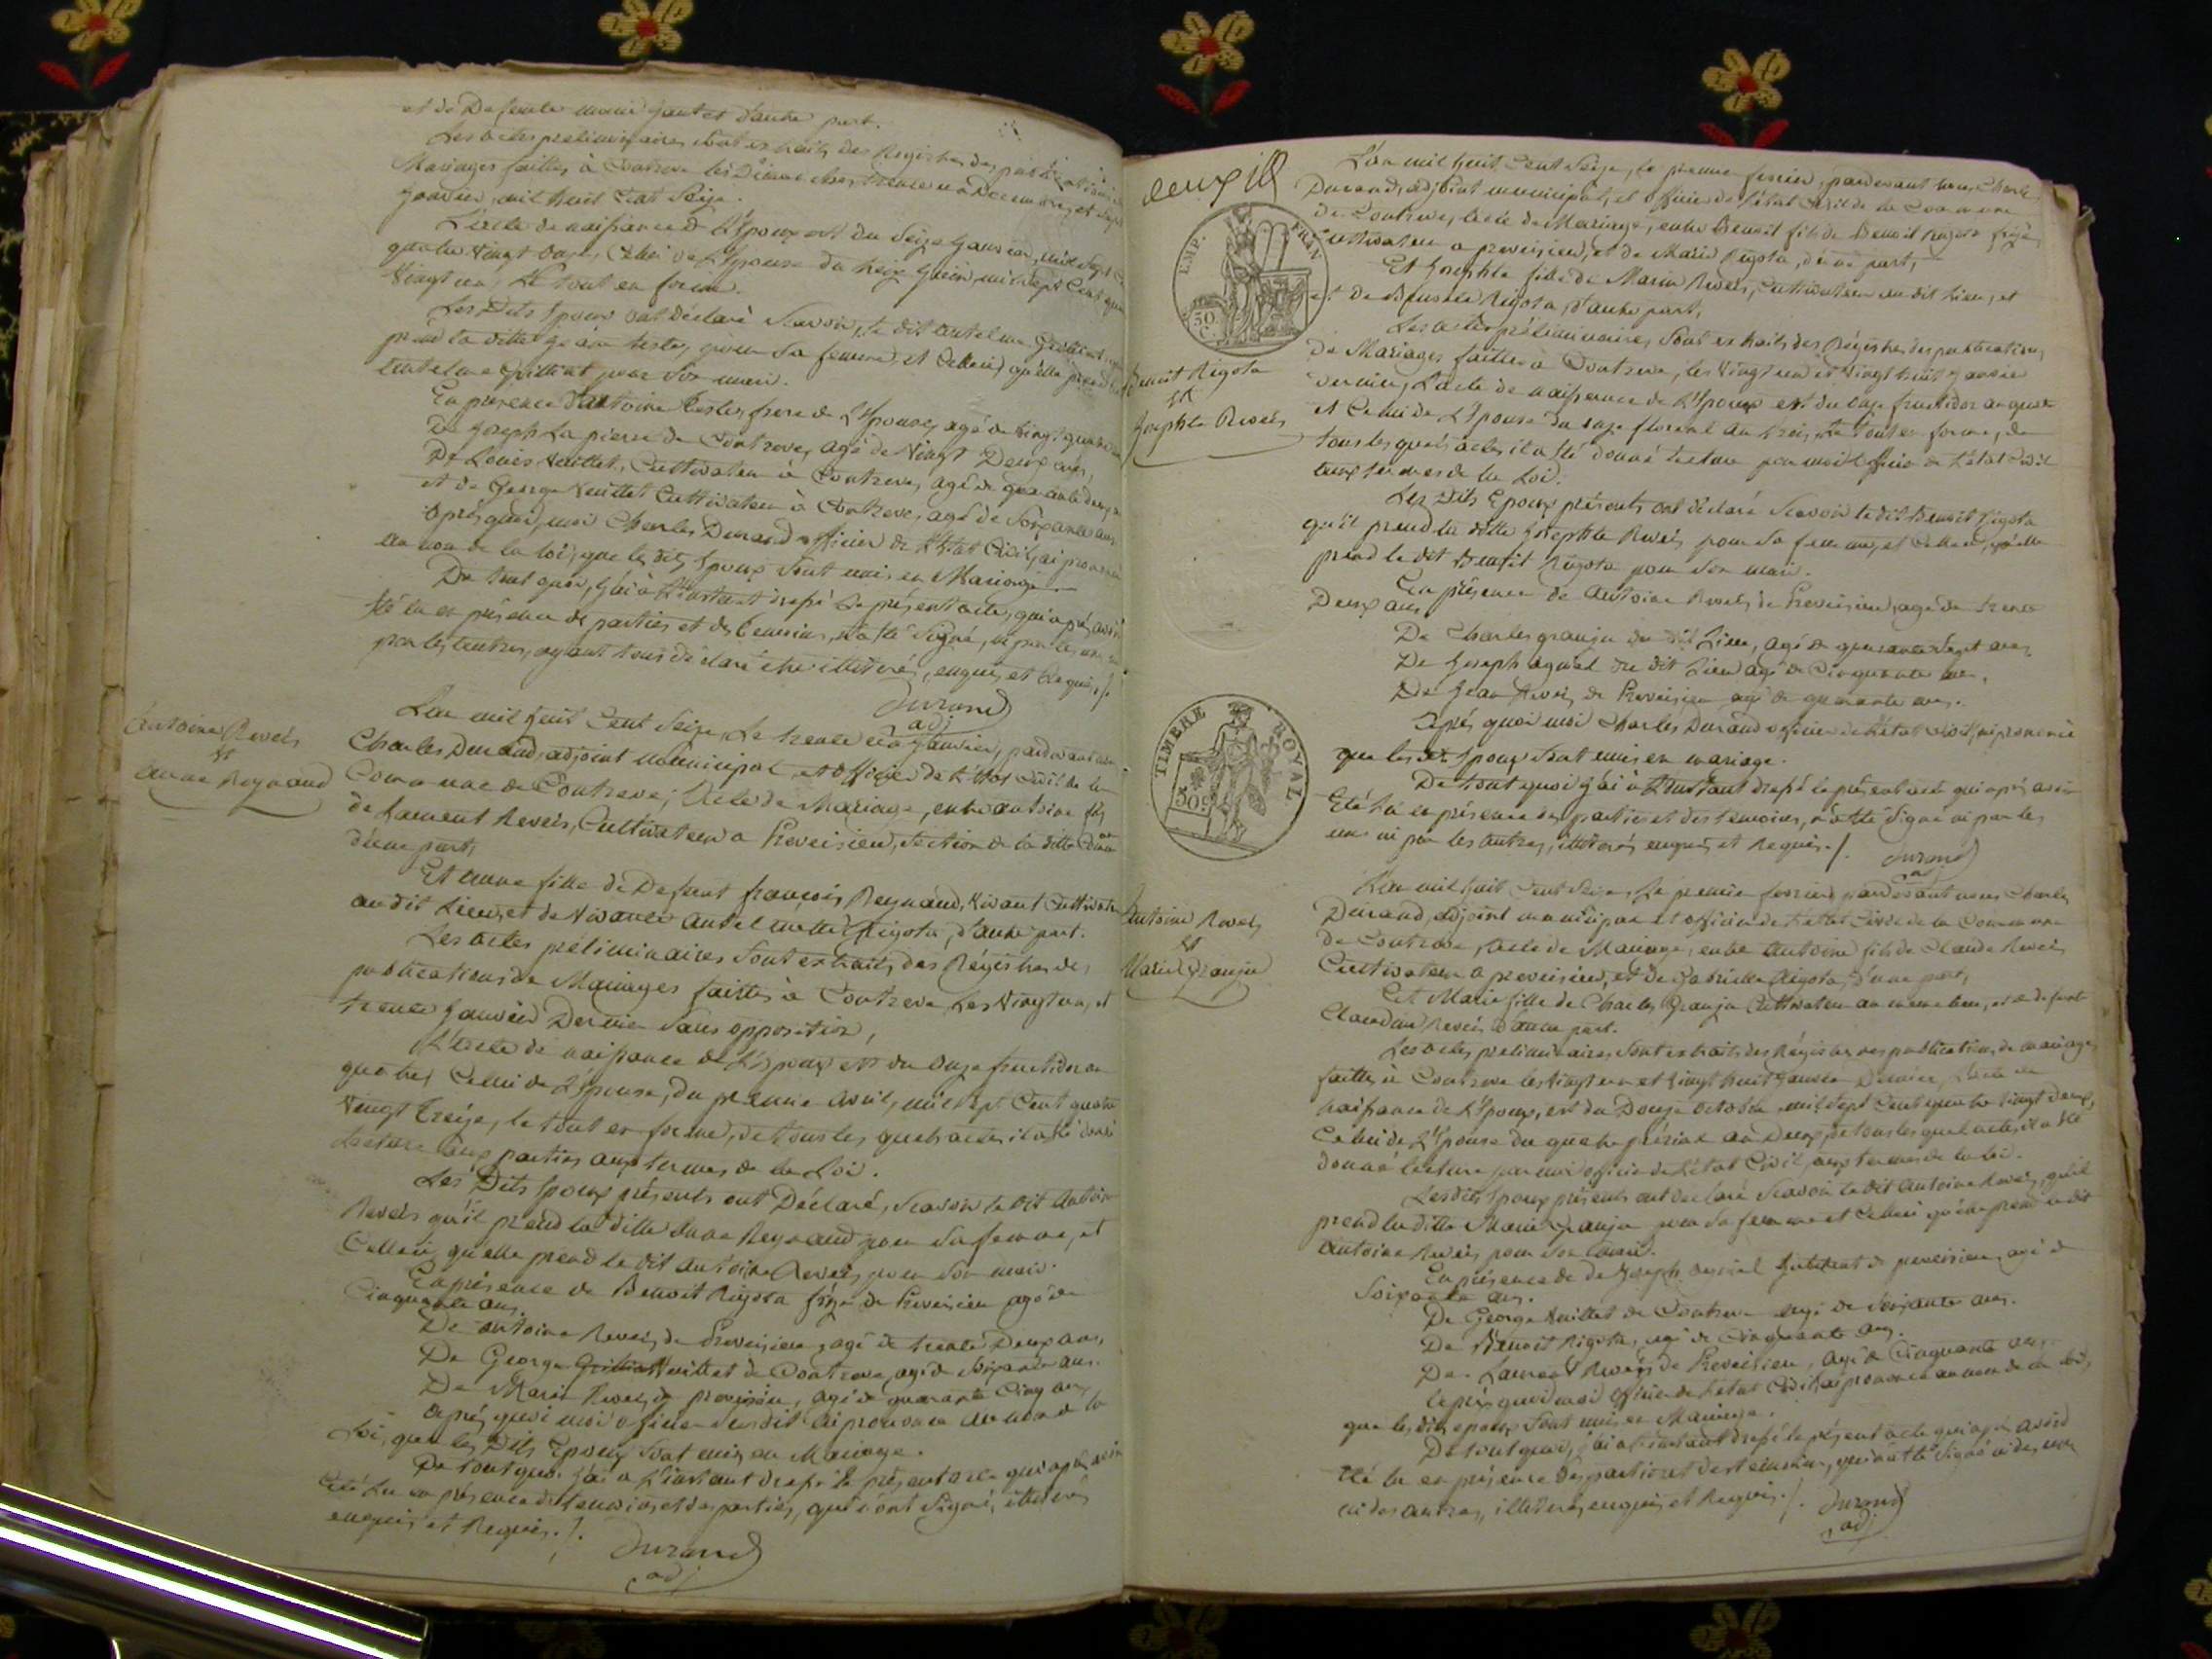 et de Defunte marie Jantet d'autre part.
Les actes preliminaires sont extraits des Registres des publications
Mariages faittes à Contrevo les Dimanches trente un Decembre, et sept
Janvier, mil huit Cent Seize.
L'acte de naissance de l'Epoux est du Seize Janvier, mil sept
quatre Vingt onze, Celui de l'Epouse du treize Juin, mil sept Cent quatre
Vingt un, Le tout en forme.
Les Dits Epoux ont déclaré Scavoir, le dit antelme
prend la ditte teste, pour Sa femme, et Celleci, qu'elle prend
antelme pour Son mari.
En presence d'antoine teste, frere de l'Epouse, agé de Vingt quatre
De Joseph La pierre de Contrevo, agé de Vingt Deux ans,
De Louis Vuillet, Cultivateur à Contrevo, agé de quarante deux
et de George Vuillet Cultivateur à Contrevo, agé de Soixante ans
après quoi, moi Charles Durand officier de l'Etat Civil, ai prononcé
au nom de la loi, que les dits Epoux Sont unis en Mariage.
De tout quoi, J'ai à l'instant dressé Le présent acte, qui après avoir
été lu en présence des parties et des temoins, n'a été Signé, ni par les uns ni
par les autres, ayant tous déclaré être illitérés, enquis et Requis ./.
Durand
adj
Antoine Reveis
et
anne Reynaud
L'an mil huit Cent Seize, Le trente un Janvier, pardevant nous
Charles Durand, adjoint municipal et officier de l'Etat Civil de la
Commune de Contrevo; Acte de Mariage, entre antoine fils
de Laurent Reveis, Cultivateur a Preveisieu, Section de la ditte Commune
d'une part,
Et anne fille de Defunt francois Reynaud, Vivant Cultivateur
au dit Lieu, et de Vivante antelmette Rigota, d'autre part.
Les actes préliminaires Sont extraits des Régistres des
publications de Mariages faittes à Contrevo, Les Vingt un, et
trente Janvier Dernier Sans opposition,
L'acte de naissance de L'Epoux est du onze fructidor an
quatre, Celui de L'Epouse, du premier avril, mil sept Cent quatre
Vingt treize, le tout en forme, de tous les quels actes il a été donné
Lecture aux parties aux termes de la Loi.
Les Dits Epoux présents ont Déclaré, Scavoir le dit Antoine
Reveis qu'il prend la ditte Anne Reynaud pour Sa femme, et
Celleci, qu'elle prend le dit antoine Reveis pour Son mari.
En présence de Benoit Rigota de Preveisieu agé de
Cinquante ans.
De antoine Reveis de Preveisieu, agé de trente Deux ans,
De George Vuillet de Contrevo, agé de Soixante ans.
De Marin Reveis de preveisieu, agé de quarante Cinq ans
après quoi moi officier Susdit ai prononcé au nom de la
Loi, que les Dits Epoux Sont unis en Mariage.
De tout quoi J'ai a L'instant dressé le présent acte qui après avoir
été Lu en présence des temoins, et des parties, qui n'ont Signé, illitérés
enquis et Requis ./.
Durand
adj
EMP. FRAN
50
C
L'an mil huit Cent Seize, le premier fevrier, pardevant nous Charles
Durand, adjoint municipal, et officier de l'état Civil de la Commune
de Contrevo, acte de Mariage, entre Benoit fils de Benoit Rigota
Cultivateur a preveisieu, et de Marie Rigota, d'une part,
Et Josephte fille de Marin Reveis, Cultivateur au dit Lieu, et
et de Rigota, d'autre part,
Les actes préliminaires, Sont extraits des Régistres des publications
de Mariages faittes à Contrevo, les Vingt un et Vingt huit Janvier
dernier, L'acte de naissance de L'Epoux est du onze fructidor an quatre
et Celui de L'Epouse du onze floreal an trois, Le tout en forme, de
tous les quels actes, il a été donné Lecture par moi officier de l'état Civil
aux termes de la Loi.
Benoit Rigota
et
Josephte Reveis
Les Dits Epoux présents ont déclaré Scavoir le dit Benoit Rigota
qu'il prend la ditte Josephte Reveis pour Sa femme, et Celleci, qu'elle
prend le dit Benoit Rigota pour Son mari.
En présence de Antoine Reveis, de Preveisieu, agé de trente
Deux ans
De Charles granju du dit Lieu, agé de quarante Sept ans,
De Joseph du dit Lieu agé de Cinquante ans,
De Jean Reveis de Preveisieu agé de quarante ans.
Après quoi moi Charles Durand officier de l'état Civil, ai prononcé
que les dits Epoux Sont unis en mariage.
De tout quoi J'ai à L'instant dressé le présent acte qui après avoir
Eté Lu en présence des parties et des temoins, n'a été Signé ni par les
uns ni par les autres, illitérés enquis et Requis ./.
Durand
adj
TIMBRE ROYAL
50c
Antoine Reveis
et
Marie Granju
L'an mil huit Cent Seize, Le premier fevrier, pardevant nous Charles
Durand, adjoint municipal et officier de l'état Civil de la Commune
de Contrevo, acte de Mariage, entre Antoine fils de Claude Reveis
Cultivateur a preveisieu, et de Gabrielle Rigota, d'une part,
Et Marie fille de Charles Granju Cultivateur au même lieu, et de defunte
Claudine Reveis d'autre part.
Les actes preliminaires, Sont extraits des Régistres des publications de mariage
faittes à Contrevo les Vingt un et Vingt huit Janvier Dernier, L'acte de
naissance de L'Epoux, est du Douze octobre, mil Sept Cent quatre Vingt Deux,
Celui de L'Epouse du quatre prérial an Deux, de tous les quels actes, il a été
donné lecture par moi officier de L'état Civil, aux termes de la loi.
Les dits Epoux présents ont déclaré Scavoir le dit Antoine Reveis, qu'il
prend la ditte Marie Granju pour Sa femme et Celleci qu'elle prend le dit
Antoine Reveis pour Son mari.
En présence de de Joseph de preveisieu, agé de
Soixante ans.
De George Vuillet de Contrevo agé de Soixante ans.
De Benoit Rigota, agé de Cinquante ans.
De Laurent Reveis de Preveisieu, agé de Cinquante ans.
après quoi moi officier de l'état Civil, ai prononcé au nom de la loi,
que les dits epoux Sont unis en Mariage.
De tout quoi, j'ai à l'instant dressé le présent acte qui après avoir
été lu en présence des parties et des temoins, qui n'a été Signé ni des uns
ni des autres, illitérés, enquis, et Requis ./.
Durand
adj